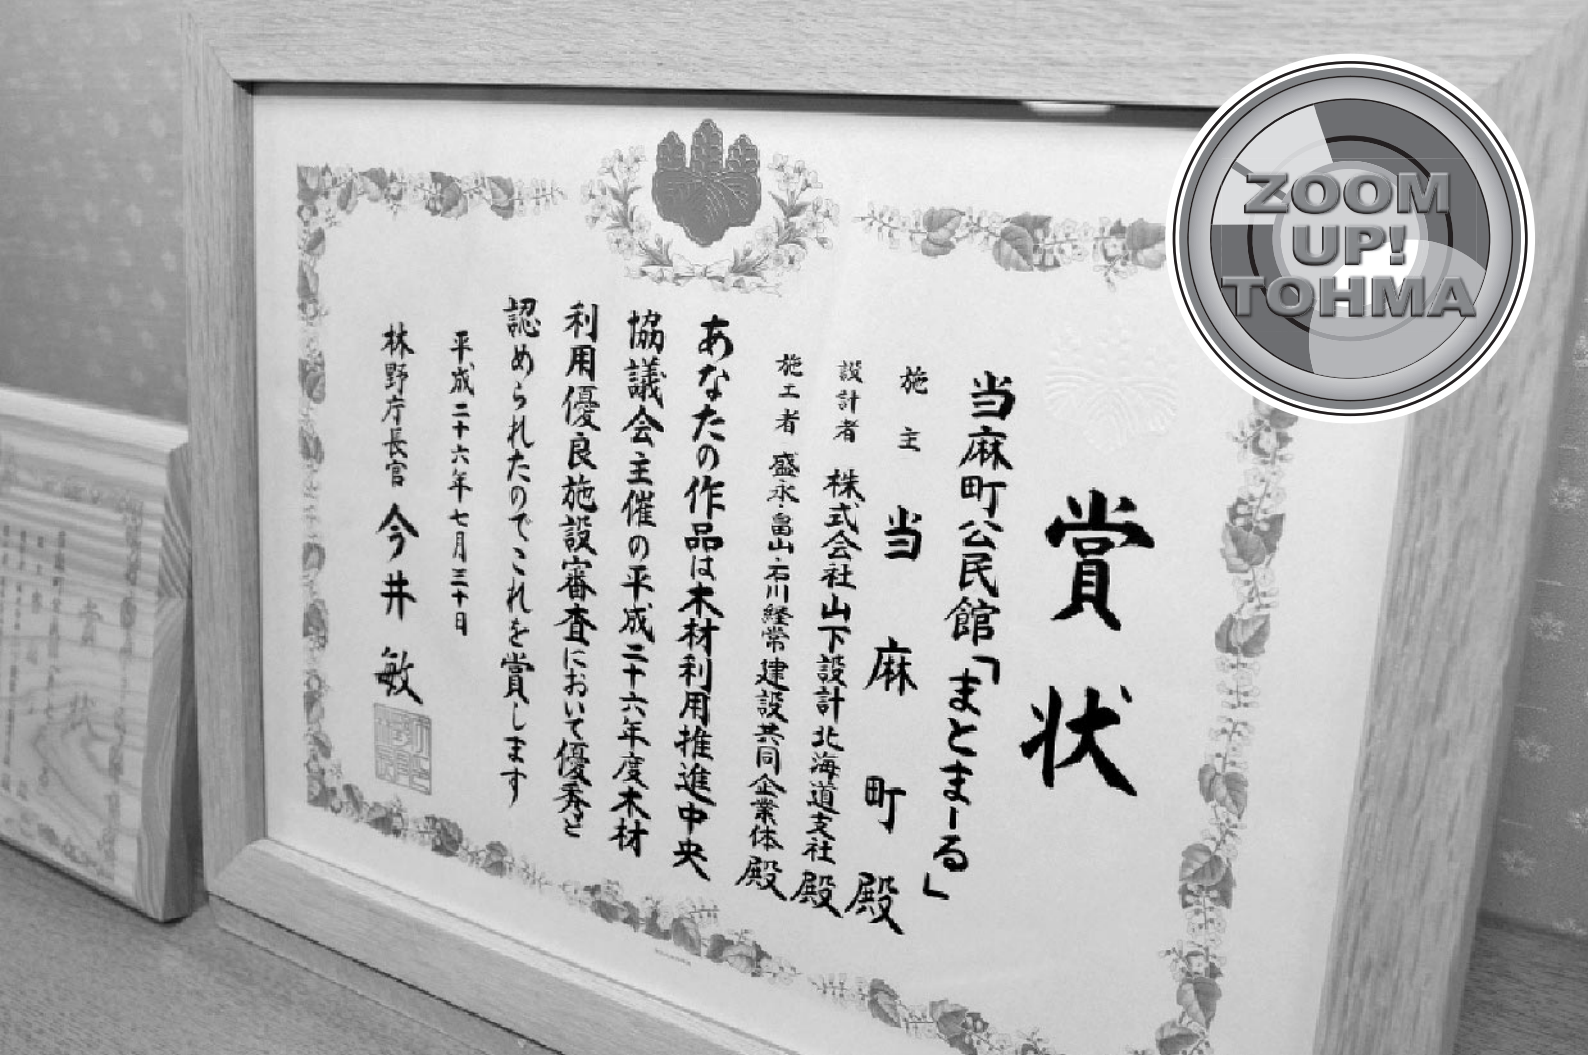 ZOOM
UP!
TOHMA
賞状
当麻町公民館「まとまーる」
施主 当麻町殿
設計者 株式会社山下設計北海道支社殿
施工者 盛永・畠山・石川経常建設共同企業体殿
あなたの作品は木材利用推進中央
協議会主催の平成二十六年度木材
利用優良施設審査において優秀と
認められたのでこれを賞します
平成二十六年七月三十日
林野庁長官 今井敏